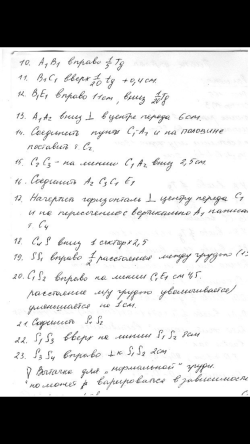 10. A₁ B₁ вправо 1/3 Tg
11. B₁ C₁ вверх 1/20 Tg + 0,4 см.
12. B₁ E₁ вправо 11 см, вниз 1/20 Tg
13. A₁ A₂ вниз ⊥ в центре переда 6 см.
14. Соединить пункты C₁-A₁ и на половине
поставить т. C₂.
15. C₂ C₃ - на линии C₁ A₂ вниз 2,5 см
16. Соединить A₂ C₃ C₁ E₁
17. Начертить горизонталь ⊥ центру переда C₁
и на пересечение с вертикалью A₁
т. C₄
18. C₄ S вниз
19. SS₁ вправо 1/2 расстояния между грудью
20. S₁ S₂ вправо на линии
расстояние м/у грудью увеличивается/
уменьшается на 1 см.
21. Соединить S₁ S₂
22. S₁ S₃ вверх на линии S₁ S₂ см
23. S₃ S₄ вправо ⊥ к S₁ S₂ 2 см
Вытачка для "нормальной" груди.
может варироваться в зависимости